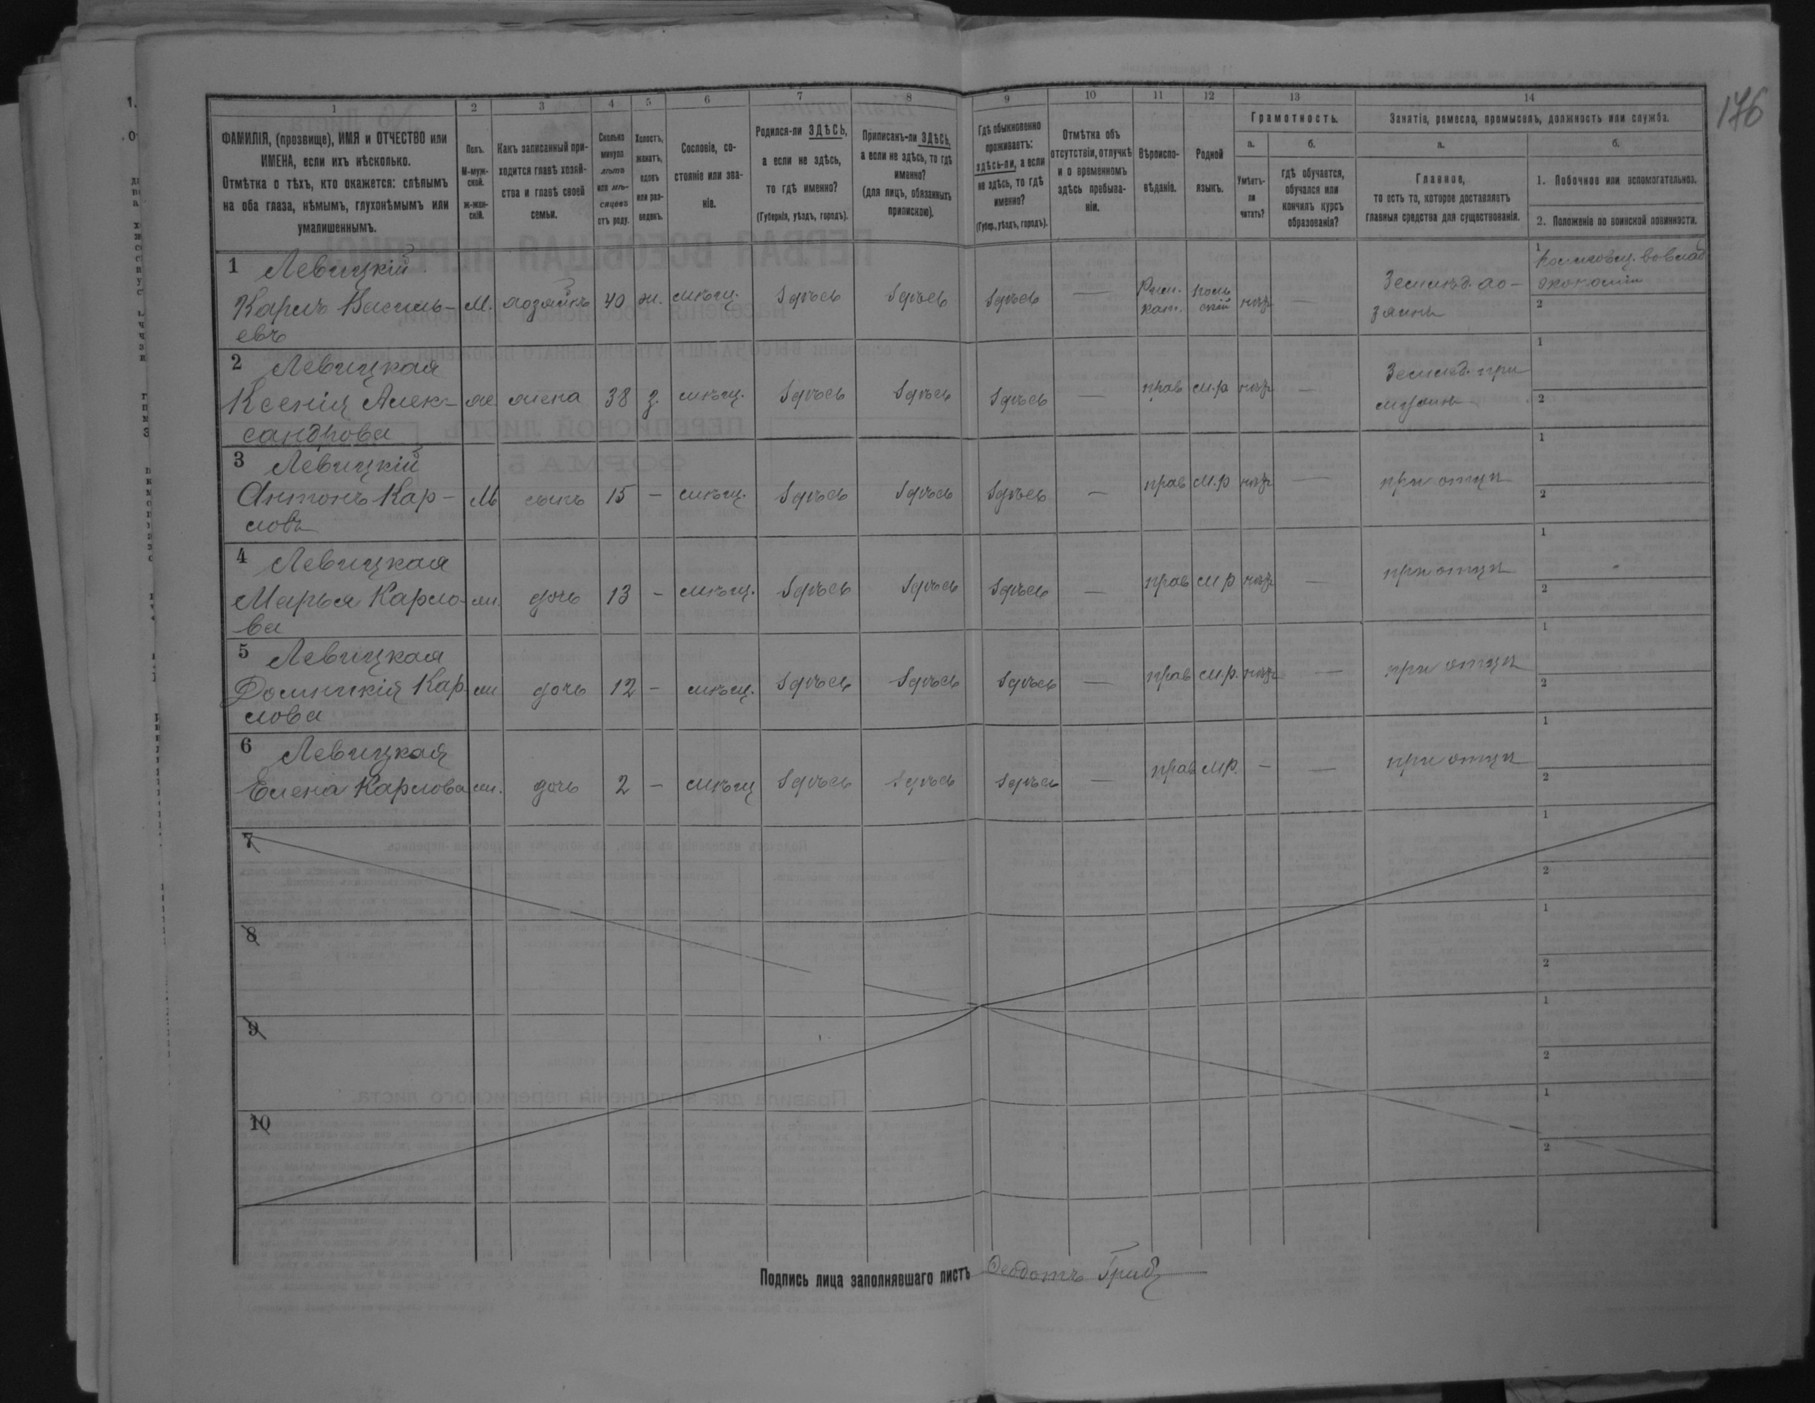 176
1 2 3 4 5 6 7 8 9 10 11 12 13 14
ФАМИЛІЯ, (прозвище), ИМЯ и ОТЧЕСТВО или
ИМЕНА, если ихъ нѣсколько.
Отмѣтка о тѣхъ, кто окажется: слѣпымъ
на оба глаза, нѣмымъ, глухонѣмымъ или
умалишеннымъ.
Полъ.
М-муж-
ской.
ж-жен-
скій.
Какъ записанный при-
ходится главѣ хозяй-
ства и главѣ своей
семьи.
Сколько
минуло
лѣтъ
или мѣ-
сяцевъ
отъ роду.
Холостъ,
женатъ,
вдовъ
или раз-
веденъ.
Сословіе, со-
стояніе или зва-
ніе.
Родился-ли ЗДѢСЬ,
а если не здѣсь,
то гдѣ именно?
(Губернія, уѣздъ, городъ).
Приписанъ-ли ЗДѢСЬ,
а если не здѣсь, то гдѣ
именно?
(для лицъ, обязанныхъ
припискою).
Гдѣ обыкновенно
проживаетъ:
здѣсь-ли, а если
не здѣсь, то гдѣ
именно?
(Губер., уѣздъ, городъ).
Отмѣтка объ
отсутствіи, отлучкѣ
и о временномъ
здѣсь пребыва-
ніи.
Вѣроиспо-
вѣданіе.
Родной
языкъ.
Грамотность.
а.
Умѣетъ-
ли
читать?
б.
гдѣ обучается,
обучался или
кончилъ курсъ
образованія?
Занятіе, ремесло, промыселъ, должность или служба.
а.
Главное,
то есть то, которое доставляетъ
главныя средства для существованія.
б.
1. Побочное или вспомогательное.
2. Положеніе по воинской повинности.
1 Левицкій
Карлъ Василь-
евъ
М. хозяинъ 40 ж. мѣщ. здѣсь здѣсь здѣсь — Рим. кат. поль скій нѣт — Землед. хо-
зяинъ
1
2
2 Левицкая
Ксенія Алек-
сандрова
ж. жена 38 з. мѣщ. здѣсь здѣсь здѣсь — прав м.р нѣт — Землед. при
мужѣ
1
2
3 Левицкій
Антонъ Кар-
ловъ
М сынъ 15 — мѣщ. здѣсь здѣсь здѣсь — прав м.р нѣт — при отцѣ
1
2
4 Левицкая
Марья Карло-
ва
ж. дочь 13 — мѣщ. здѣсь здѣсь здѣсь — прав м р нѣт — при отцѣ
1
2
5 Левицкая
Доминикія Кар
лова
ж дочь 12 — мѣщ. здѣсь здѣсь здѣсь — прав м.р. нѣт — при отцѣ
1
2
6 Левицкая
Елена Карлова
ж. дочь 2 — мѣщ здѣсь здѣсь здѣсь — прав м.р. — — при отцѣ
1
2
7
1
2
8
1
2
9
1
2
10
1
2
Подпись лица заполнявшаго листъ Ѳеодотъ